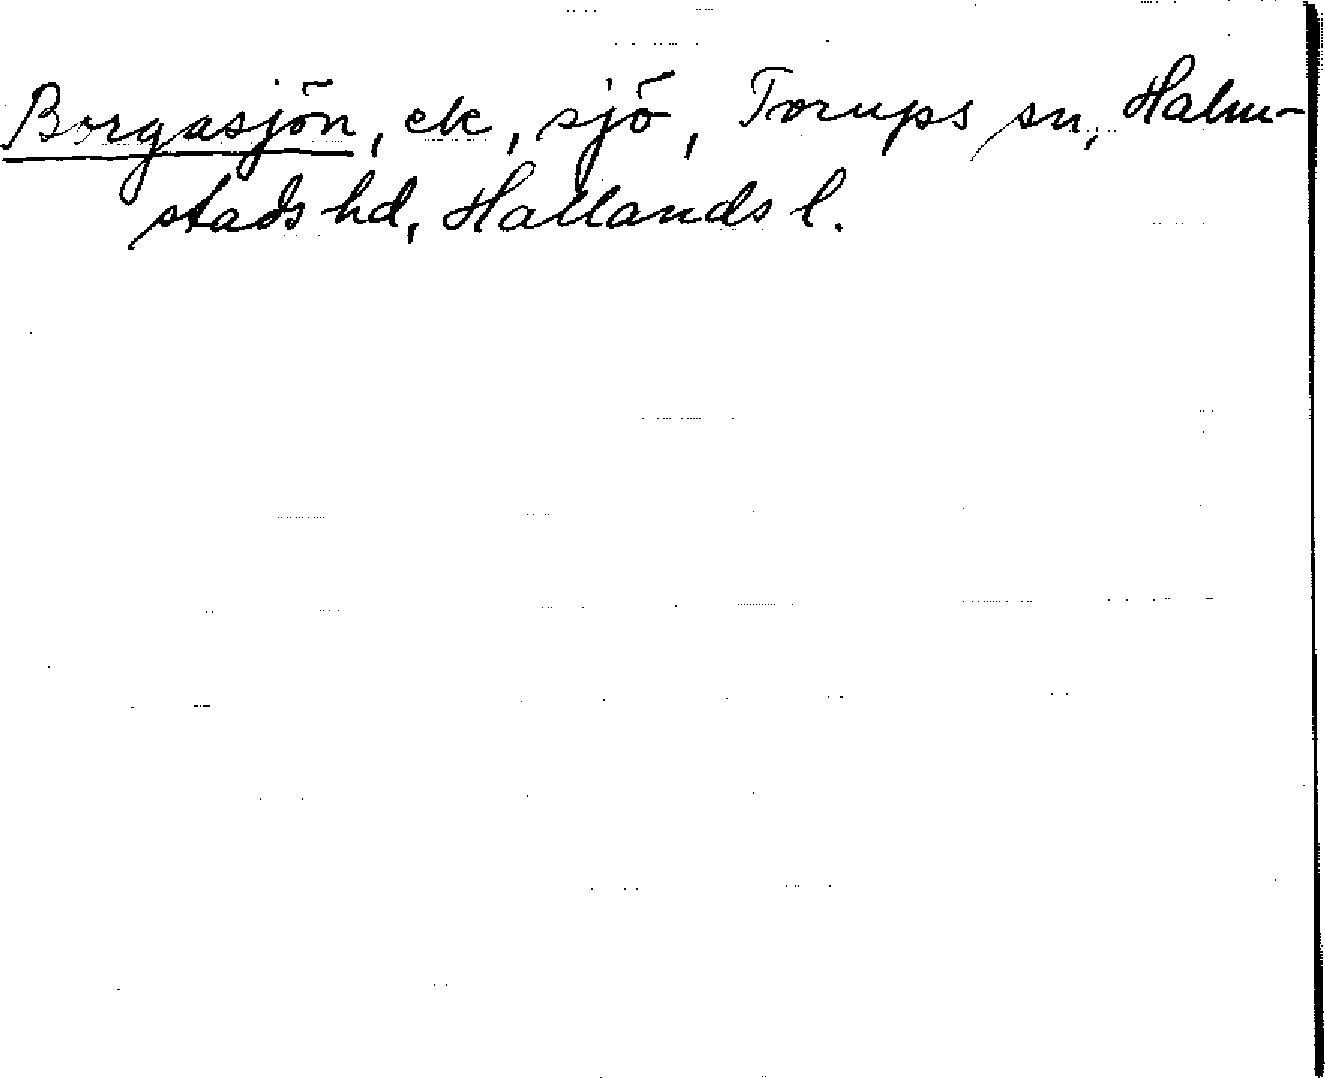 Borgasjön, ek, sjö, Torups sn, Halm-
stads hd, Hallands l.